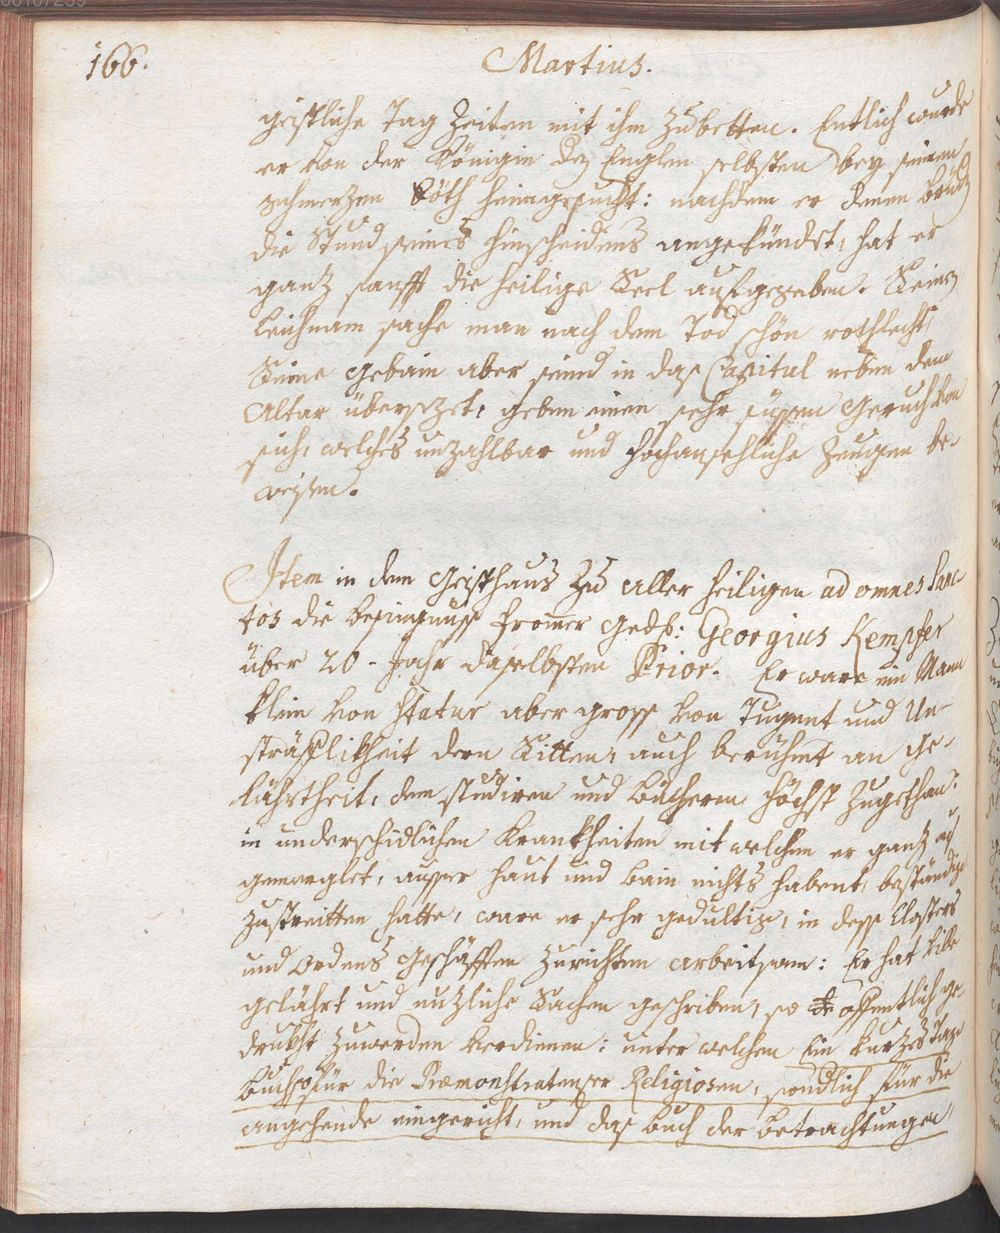 166.
Martius.
geistliche Tag Zeiten mit ihm zubetten. Entlich wurde
er von der Königin der Englen selbsten bey seinem
schmerzen böth heimgesucht: nachdem er denen Brüdr
die Stund seines hinscheidens angekündet, hat er
ganz sanfft die heilige Seel aufgegeben. Seinen
Leichnam sache man nach dem Tod schön rothlecht,
Seine Gebain aber seind in das Capitul neben dem
Altar übersezet, geben einen sehr süssen Geruch von
sich, welches unzahlbar und hochansehliche Zeugen be-
weisen.
Item in dem Gotshaus zu aller heiligen ad omnes Sanc
tos die Besingnuss frommer Gedß: Georgius Kempfer
über 20-Jahr daselbsten Prior. Er ware ein Mann
klein von statur aber gross von Tugent und Un-
sträfflikheit dern Sitten, auch berühmt an Ge-
lährtheit, dem studiren und Bücheren höchst zugethan.
in underschidlichen Krankheiten mit welchen er ganz auß
gemerglet, ausser haut und bain nichts habent, beständig
zustreitten hatte, ware er sehr gedultig, in dess Closters
und Ordens Geschäfften zurichten arbeitsam: Er hat vile
gelährt und nuzliche Sachen geschriben, so offentlich ge-
drukht zuwerden verdienen: unter welchen Ein kurzes Tag
Buch für die Præmonstratenser Religiosen, sondlich für die
angehende eingericht, und das Buch der Betrachtungen,